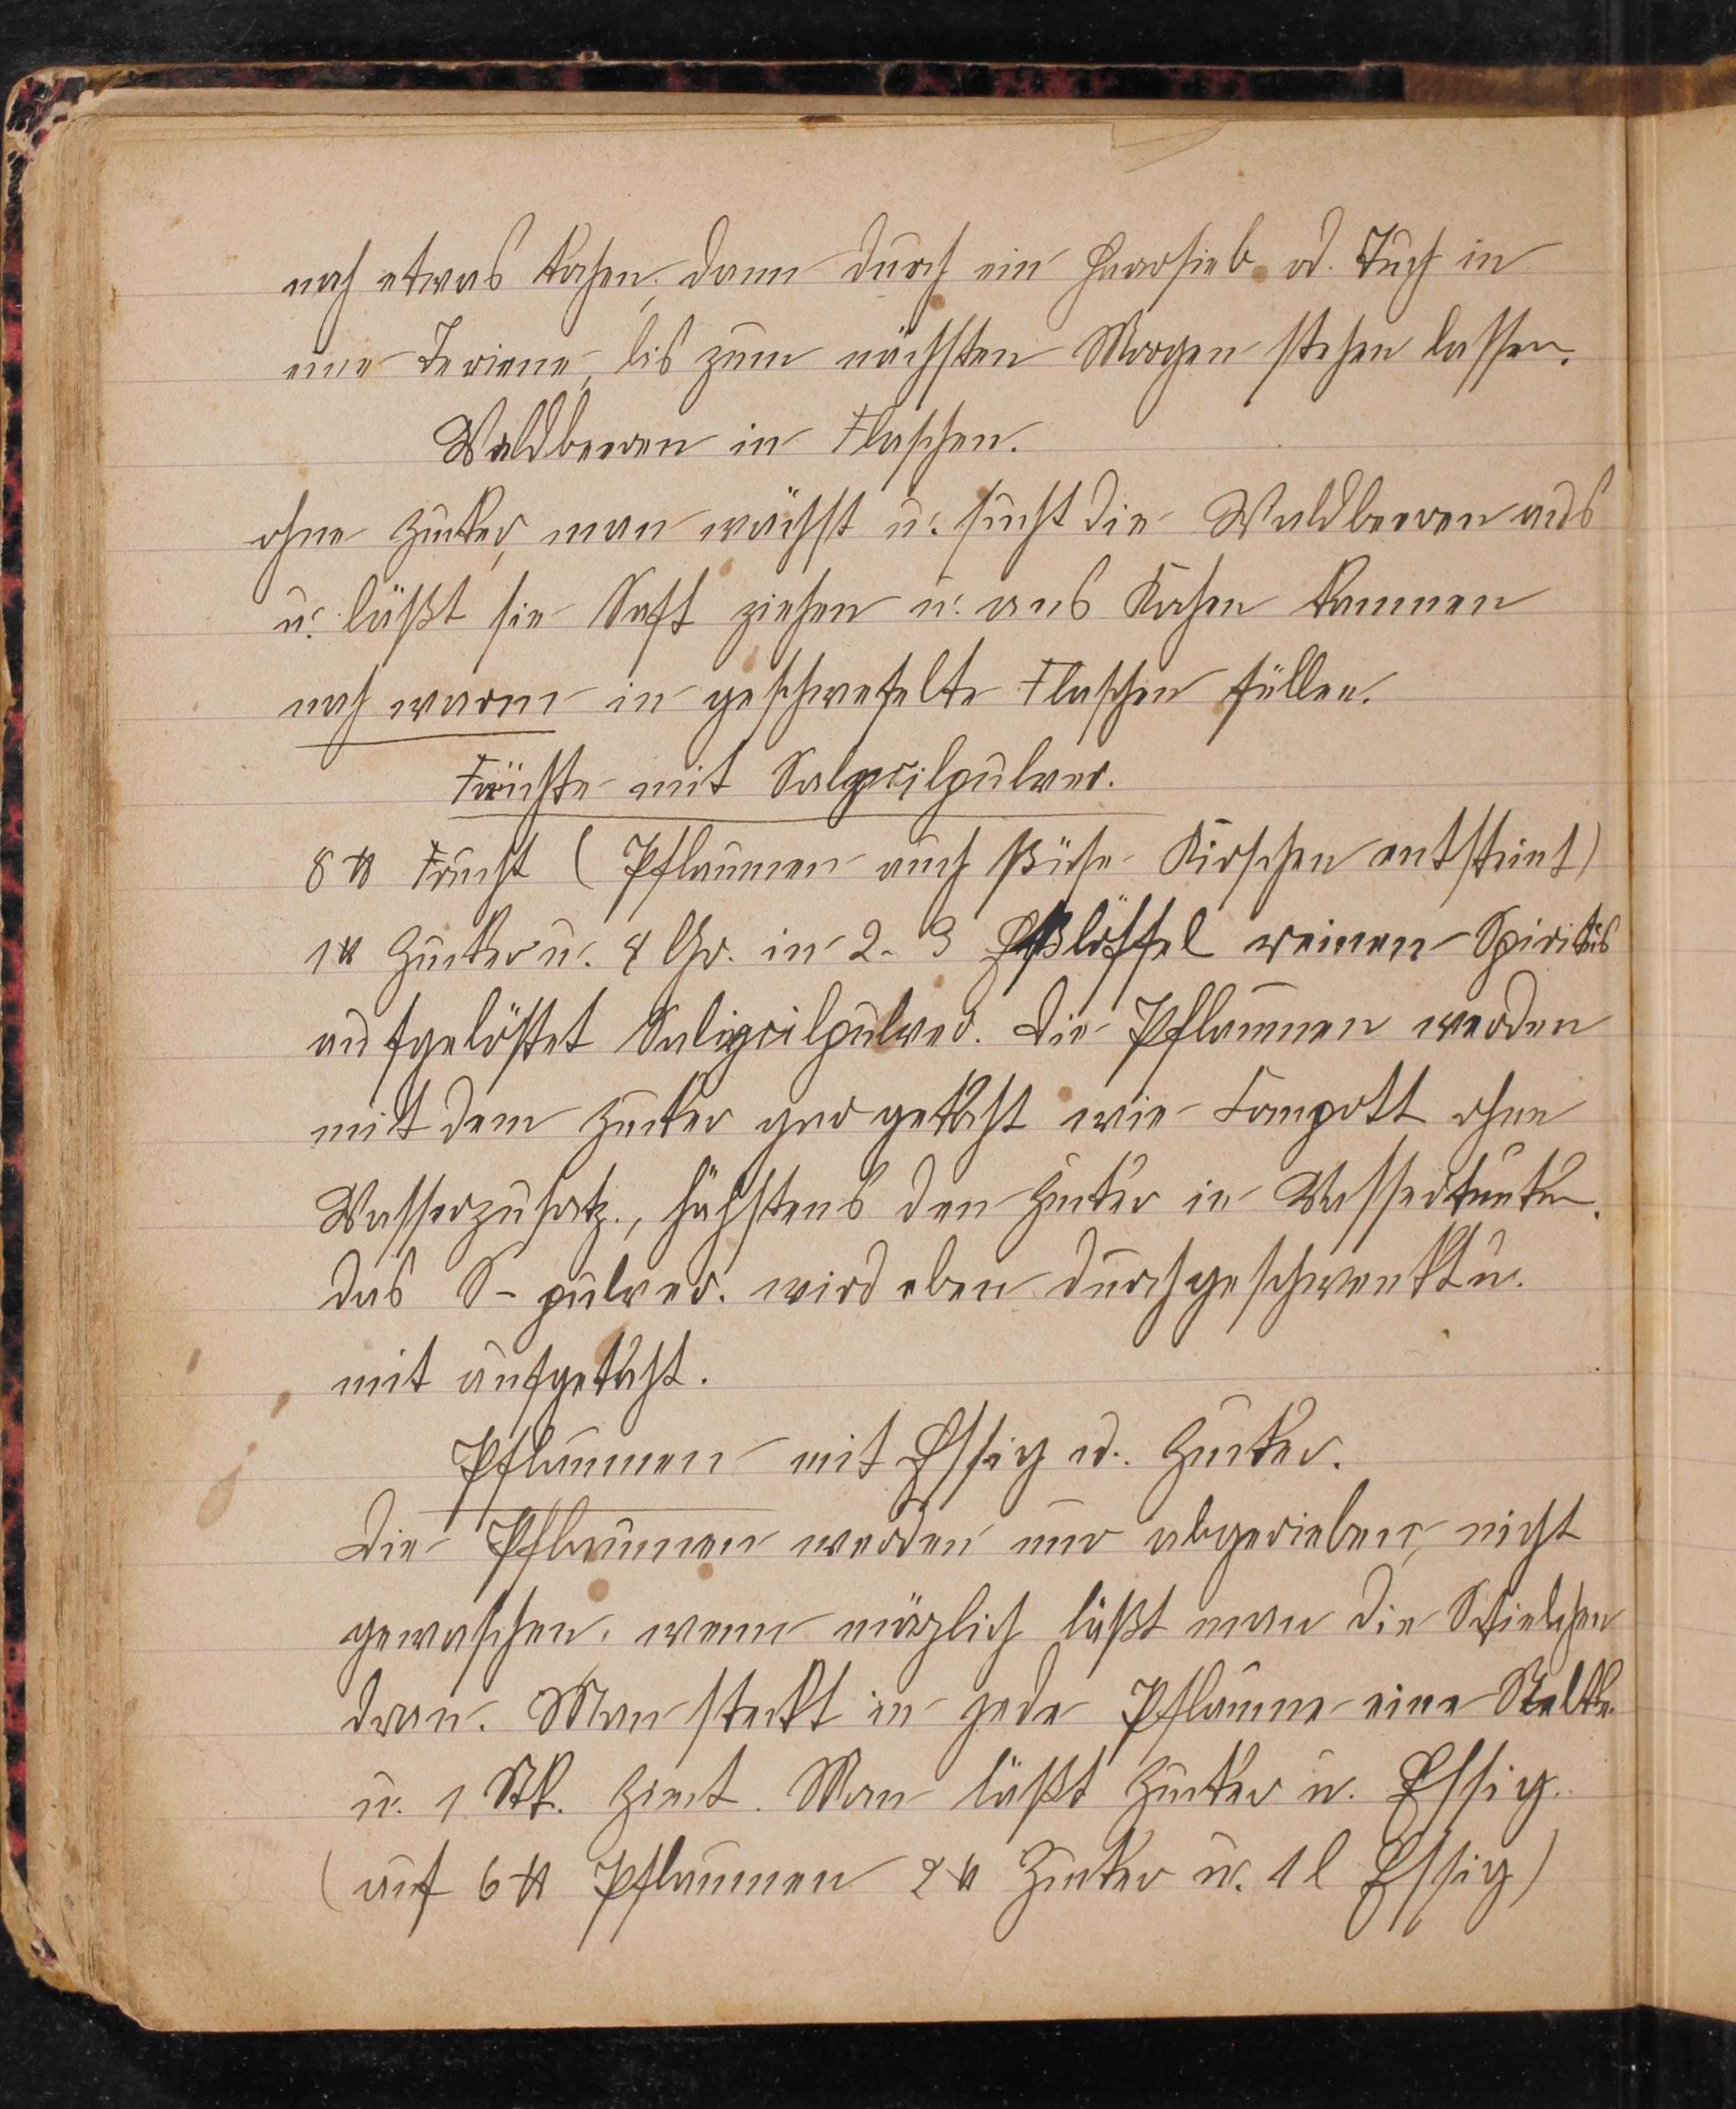 noch etwas kochen, dann durch ein Haarsieb od. Tuch in
eine Teriene, bis zum nächsten Morgen stehen lassen.
Waldbeeren in Flaschen.
ohne Zucker, man wächst u. sucht die Waldbeeren aus
u. läßt sie Saft ziehen u. ans Kochen kommen
noch warm in geschwefelte Flaschen füllen.
Früchte mit Salycilpulver.
8 ℔ Frucht (Pflaumen auch süße Kirschen entsteint)
1 ℔ Zucker u. 4 Gr. in 2-3 Eßlöffel reinen Spiritus
aufgelöstet Salycilpulver. Die Pflaumen werden
mit dem Zucker gar gekocht wie Compott ohne
Wasserzusatz, höchstens den Zucker in Wasser tunken.
das S-pulver. wird eben durchgeschwenkt u.
mit aufgekocht.
Pflaumen mit Essig u. Zucker.
Die Pflaumen werden nur abgerieben, nicht
gewaschen, wenn möglich läßt man die Stielchen
dran. Man steckt in jede Pflaume eine Nelke
u. 1 Stk. Zimt. Man läßt Zucker u. Essig
(auf 6 ℔ Pflaumen 2 ℔ Zucker u. 1 l Essig)